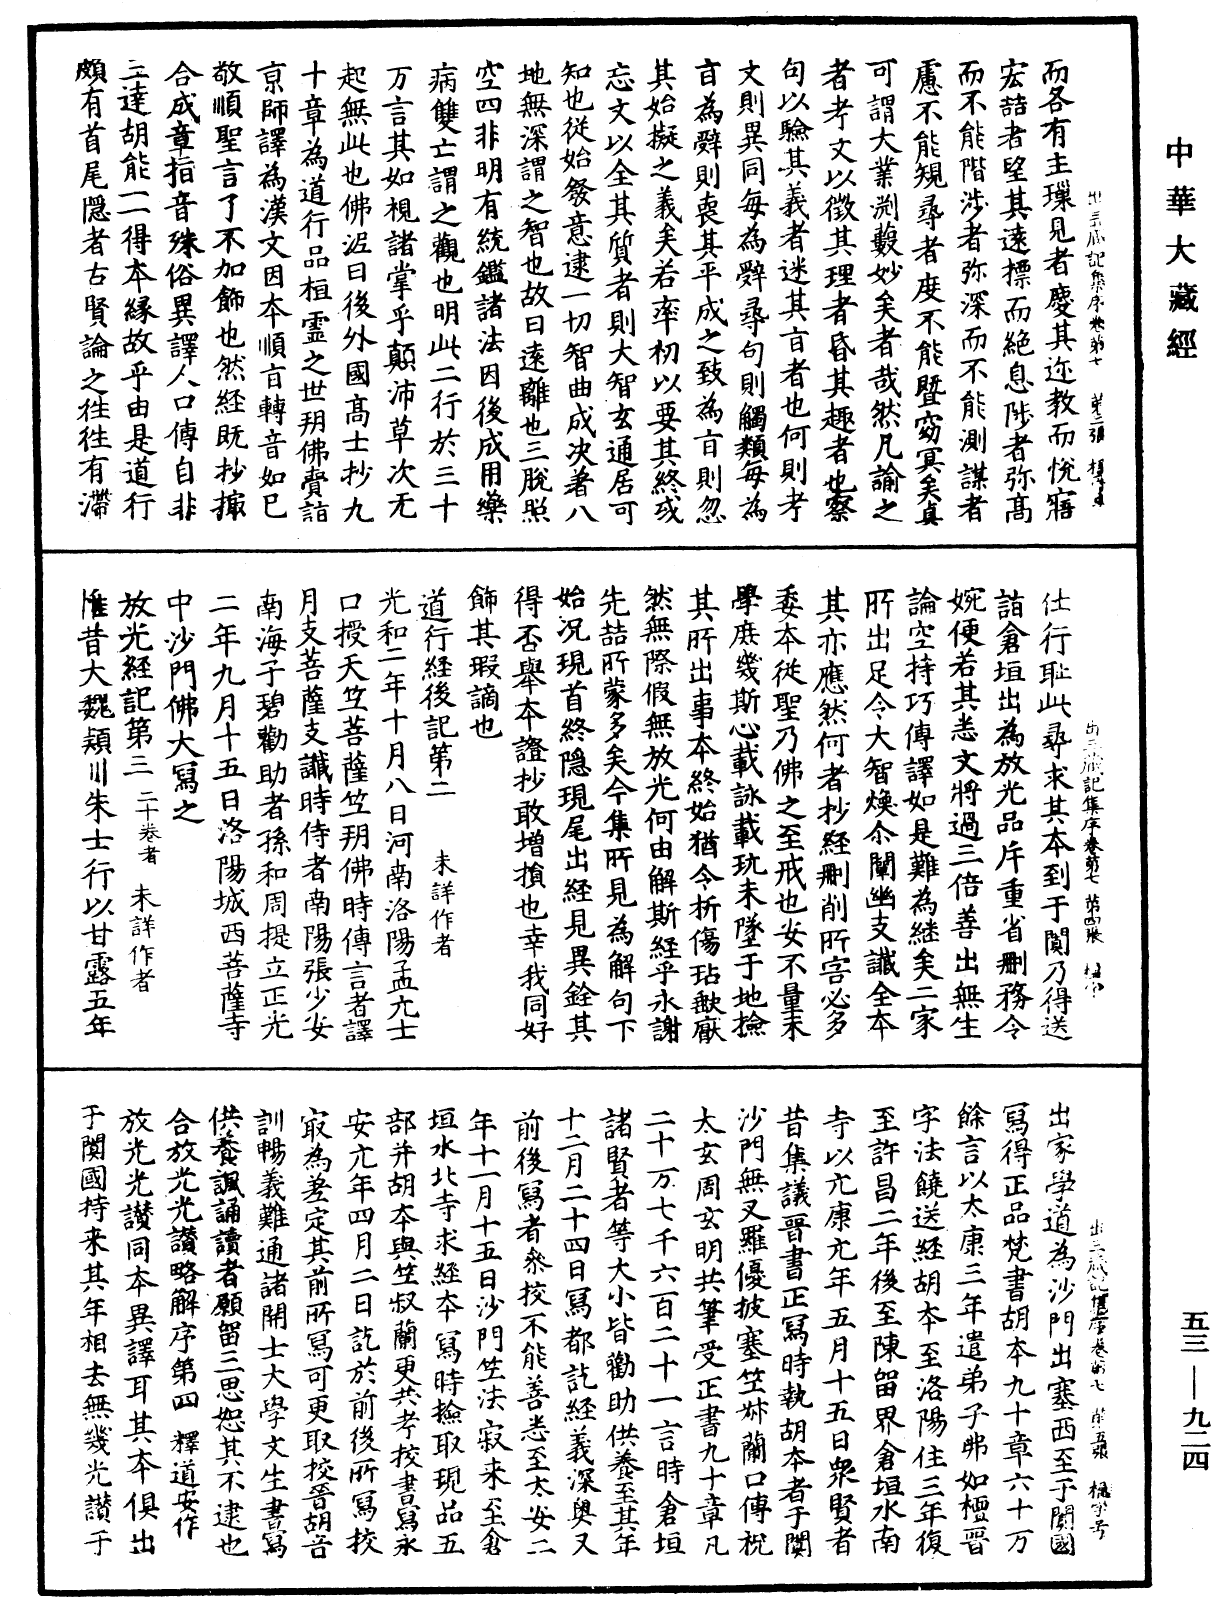 中華大藏經
而各有主璅見者慶其迩教而悅寤
宏喆者望其遠標而絕息陟者弥髙
而不能階涉者弥深而不能測謀者
慮不能規尋者度不能暨窈冥矣真
可謂大業渕藪妙矣者哉然凡諭之
者考文以徵其理者昏其趣者也察
句以驗其義者迷其㫖者也何則考
文則異同每為辤尋句則觸類每為
㫖為辤則喪其平成之致為㫖則忽
其始擬之義矣若率初以要其終或
忘文以全其質者則大智玄通居可
知也従始發意逮一切智曲成决著八
地無深謂之智也故曰遠離也三脫照
空四非明有統鑑諸法因後成用藥
病雙亡謂之觀也明此二行於三十
万言其如視諸掌乎顛沛草次无
起無此也佛泥曰後外國髙士抄九
十章為道行品桓靈之世朔佛賷詣
京師譯為漢文因本順㫖轉音如巳
敬順聖言了不加飾也然経既抄撮
合成章指音殊俗異譯人口傳自非
三達胡能一一得本縁故乎由是道行
頗有首尾隠者古賢論之往往有滯
出三藏記集序卷第七 第三張
仕行耻此尋求其本到于闐乃得送
詣倉垣出為放光品斥重省刪務令
婉便若其悉文將過三倍善出無生
論空持巧傳譯如是難為継矣二家
所出足令大智煥尒闡幽支讖全本
其亦應然何者抄経刪削所害必多
委本従聖乃佛之至戒也安不量末
學庶幾斯心載詠載玩未墜于地撿
其所出事本終始猶令折傷玷缺厰
然無際假無放光何由解斯経乎永謝
先喆所蒙多矣今集所見為解句下
始况現首終隠現尾出経見異銓其
得否舉本證抄敢增損也幸我同好
飾其瑕謫也
道行経後記第二 未詳作者
光和二年十月八日河南洛陽孟元士
口授天竺菩薩竺朔佛時傳言者譯
月支菩薩支讖時侍者南陽張少安
南海子碧勸助者孫和周提立正光
二年九月十五日洛陽城西菩薩寺
中沙門佛大寫之
放光経記第三 二十卷者 未詳作者
惟昔大魏潁川朱士行以甘露五年
出三藏記集序卷第七 第四張
出家學道為沙門出塞西至于闐國
寫得正品梵書胡本九十章六十万
餘言以太康三年遣弟子弗如檀晉
字法饒送経胡本至洛陽住三年復
至許昌二年後至陳留界倉垣水南
寺以元康元年五月十五日衆賢者
昔集議晉書正寫時執胡本者于闐
沙門無叉羅優披塞竺𦙶蘭口傳祝
太玄周玄明共筆受正書九十章凡
二十万七千六百二十一言時倉垣
諸賢者等大小皆勸助供養至其年
十二月二十四日寫都訖経義深奥又
前後寫者参校不能善悉至太安二
年十一月十五日沙門竺法寂来至倉
垣水北寺求経本寫時撿取現品五
部并胡本與竺叔蘭更共考校書寫永
安元年四月二日訖於前後所寫校
㝡為差定其前所寫可更取校晉胡音
訓暢義難通諸開士大學文生書寫
供養諷誦讀者願留三思恕其不逮也
合放光光讃略解序第四 釋道安作
放光光讃同本異譯耳其本俱出
于闐國持来其年相去無幾光讃于
出三藏記集序卷第七 第五張
五三—九二四